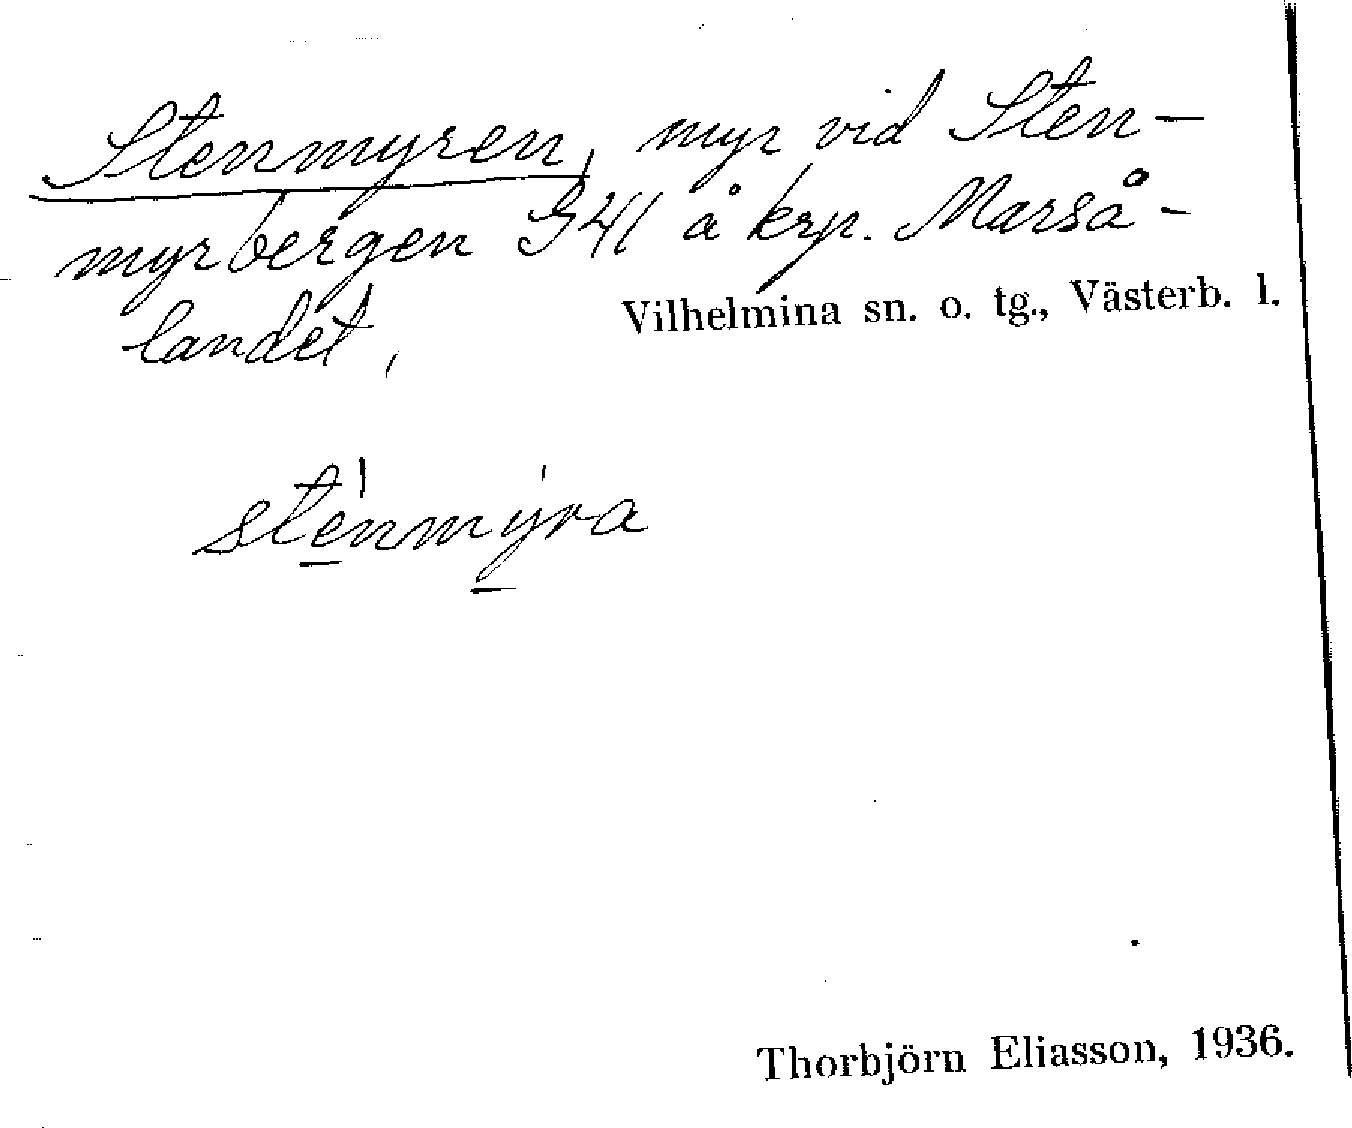 Stenmyren, myr vid Sten-
myrbergen G41 å krp. Marså-
landet,
Vilhelmina sn. o. tg., Västerb. l.
stenmyra
Thorbjörn Eliasson, 1936.